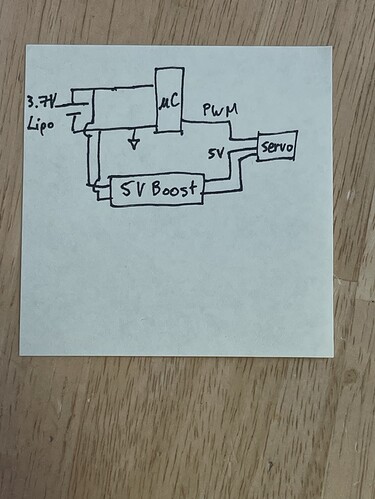 3.7V
Lipo
μC
PWM
5V
Servo
5V Boost